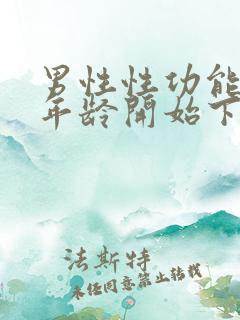 男性性功能
年龄開始下
法斯特
未经同意禁止转载